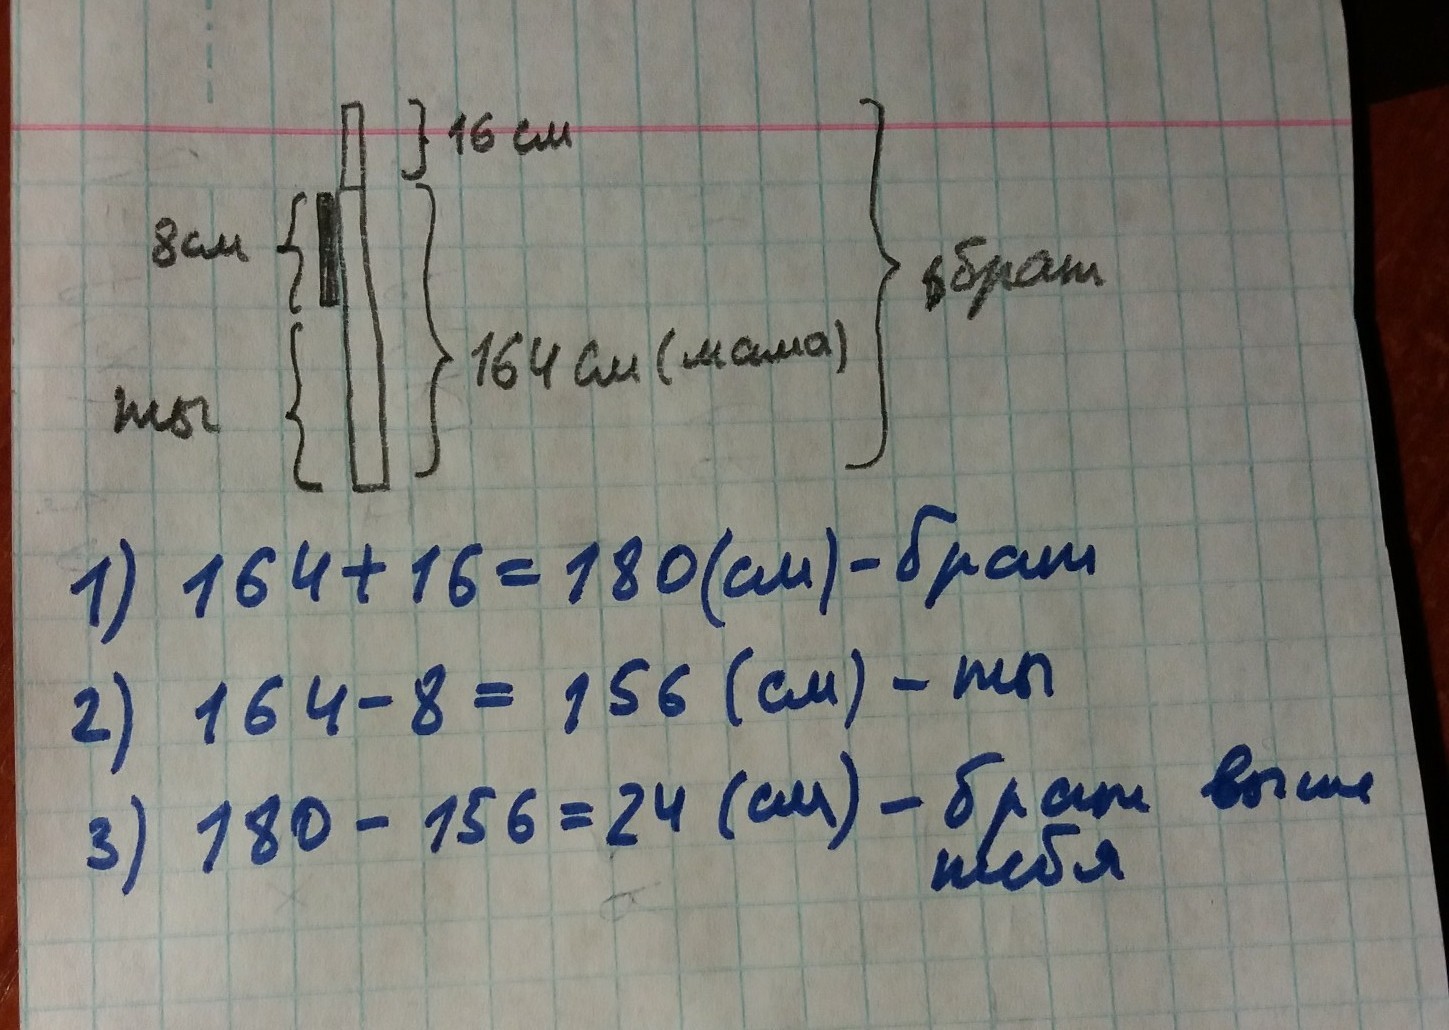 16 см
8см
164 см (мама)
брат
ты
1) 164+16=180(см)-брат
2) 164-8=156 (см)-ты
3) 180-156=24 (см)-брат выше
тебя